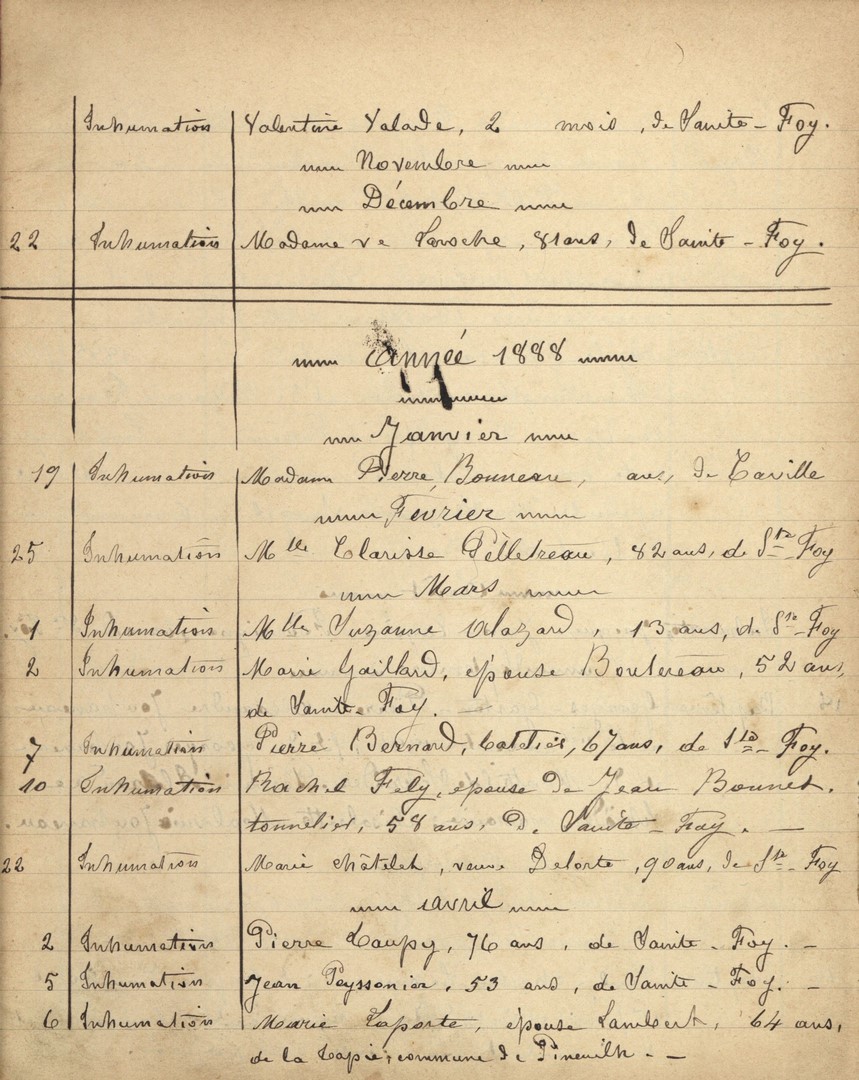 Inhumation Valentine Valade, 2 mois, de Sainte-Foy.
Novembre
Décembre
22 Inhumation Madame ve Laroche, 81 ans, de Sainte-Foy.
Année 1888
Janvier
19 Inhumation Madame Pierre Bonneau, ans, de
Fevrier
25 Inhumation Mlle Clarisse Pelletreau, 82 ans, de Ste-Foy
Mars
1 Inhumation Mlle Suzanne 13 ans, de Ste-Foy
2 Inhumation Marie Gaillard, épouse Boutereau, 52 ans,
de Sainte-Foy. —
7 Inhumation Pierre Bernard, 67 ans, de Ste-Foy.
10 Inhumation Rachel Fely, epouse de Jean Bonnet.
tonnelier, 58 ans, de Sainte-Foy. —
22 Inhumation Marie Châtelet, veuve Delorte, 90 ans, de Ste-Foy
avril
2 Inhumation Pierre Loupy, 76 ans, de Sainte-Foy. —
5 Inhumation Jean Peyssonier, 53 ans, de Sainte-Foy. —
6 Inhumation Marie Laporte, épouse Lambert, 64 ans,
de la commune de Pineuilh. —